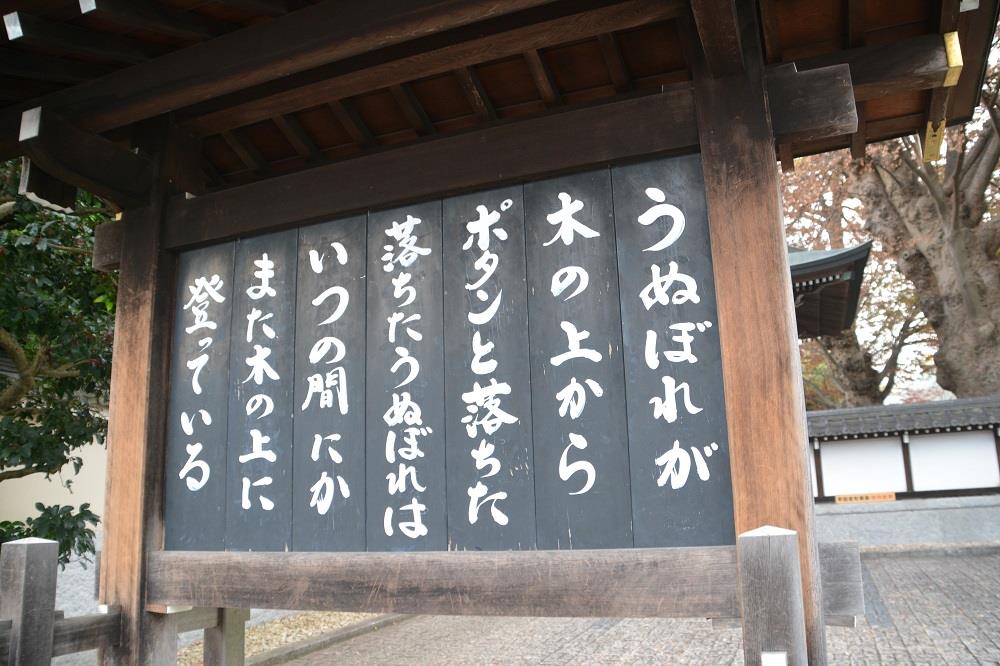 うぬぼれが
木の上から
ポタンと落ちた
落ちたうぬぼれは
いつの間にか
また木の上に
登っている